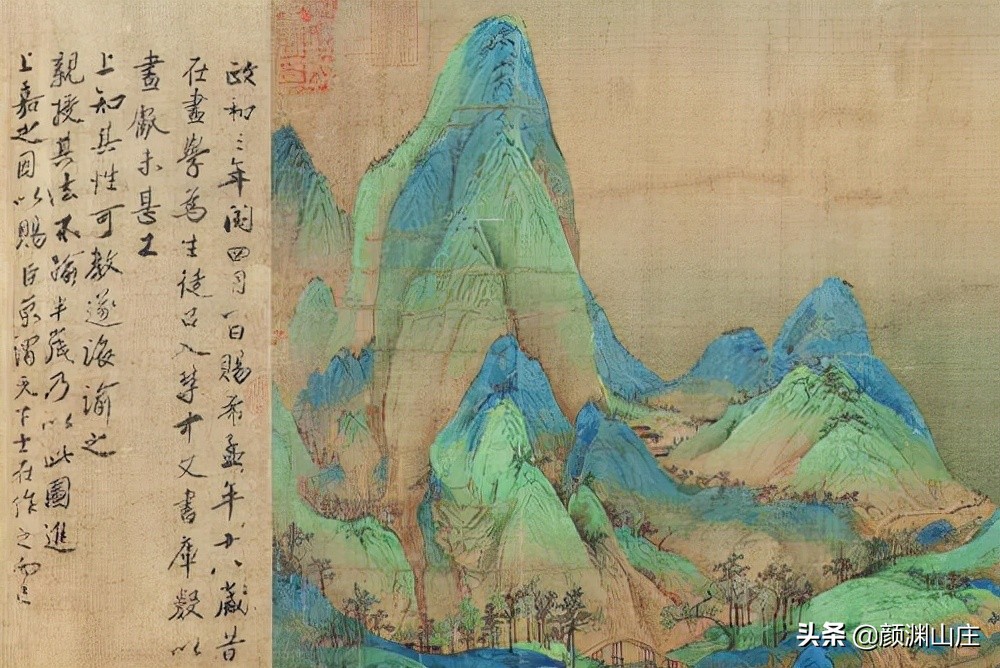 政和三年閏四月一日賜希孟年十八歲昔
在畫學爲生徒召入禁中文書庫數以
畫獻未甚工
上知其性可教遂誨諭之
親授其法不踰半歲乃以此圖進
上嘉之因以賜臣京謂天下士在作之而已
头条 @颜渊山庄